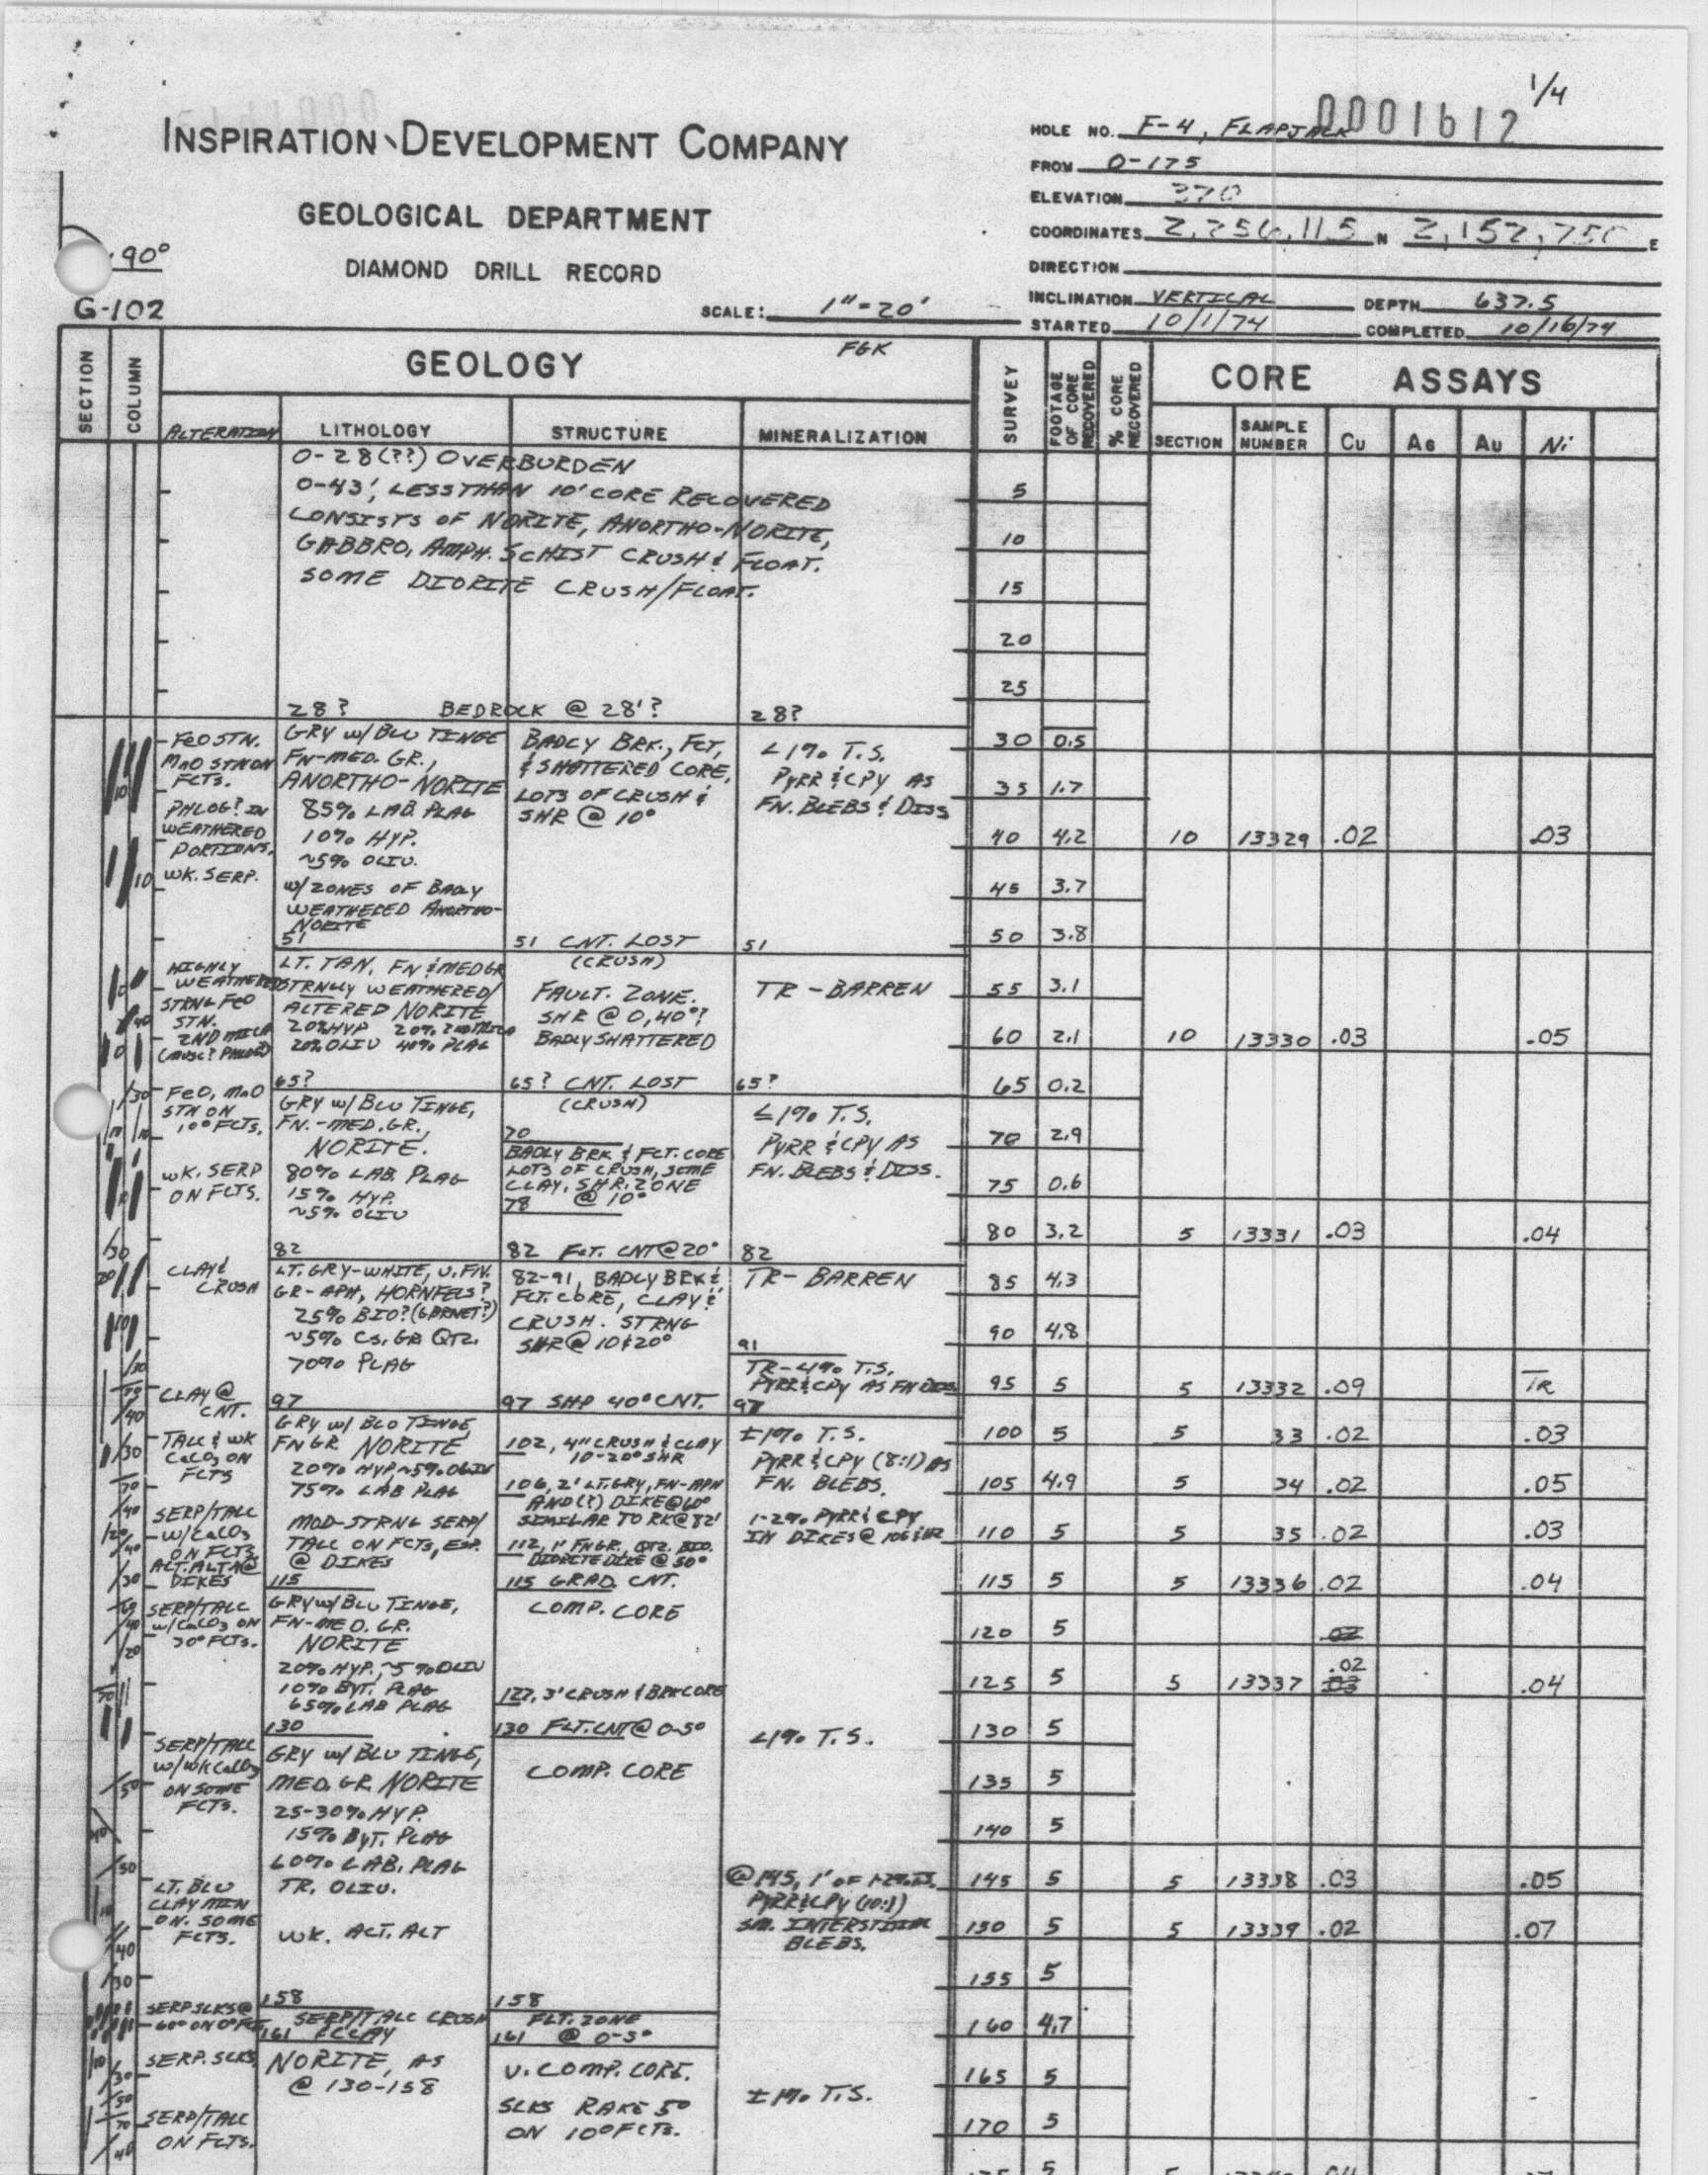 1/4
0001612
INSPIRATION DEVELOPMENT COMPANY
GEOLOGICAL DEPARTMENT
DIAMOND DRILL RECORD
90°
G-102
SCALE: 1"=20'
HOLE NO. F-4, FLAPJACK
FROM 0-175
ELEVATION 370
COORDINATES 2,256,115 N 2,152,750 E
DIRECTION
INCLINATION VERTICAL DEPTH 637.5
STARTED 10/1/74 COMPLETED 10/16/74
SECTION COLUMN GEOLOGY FGK SURVEY FOOTAGE OF CORE RECOVERED % CORE RECOVERED CORE ASSAYS
ALTERATION LITHOLOGY STRUCTURE MINERALIZATION SECTION SAMPLE NUMBER Cu AG AU Ni
0-28(??) OVERBURDEN
0-43', LESS THAN 10' CORE RECOVERED
CONSISTS OF NORITE, ANORTHO-NORITE,
GABBRO, AMPH. SCHIST CRUSH & FLOAT.
SOME DIORITE CRUSH/FLOAT.
28? BEDROCK @ 28'? 28?
FeO STN.
MnO STN ON
FCTS.
PHLOG? IN
WEATHERED
PORTIONS.
WK. SERP.
GRY w/ BLU TINGE
FN-MED. GR.,
ANORTHO-NORITE
85% LAB. PLAG
10% HYP.
~5% OLIV.
w/ZONES OF BADLY
WEATHERED ANORTHO-
NORITE
BADLY BRK., FCT,
& SHATTERED CORE,
LOTS OF CRUSH &
SHR @ 10°
<1% T.S.
PYRR & CPY AS
FN. BLEBS & DISS
51
51 CNT. LOST
(CRUSH)
51
HIGHLY
WEATHERED
STRNG FeO
STN.
2ND MICA
LT. TAN, FN & MED GR
STRNGLY WEATHERED/
ALTERED NORITE
20% HYP 20% 2ND MICA
20% OLIV 40% PLAG
FAULT. ZONE.
SHR @ 0,40°?
BADLY SHATTERED
TR - BARREN
65?
65? CNT. LOST
(CRUSH)
65?
FeO, MnO
STN ON
10° FCTS.
WK. SERP
ON FCTS.
GRY w/ BLU TINGE,
FN.-MED. GR.,
NORITE.
80% LAB. PLAG
15% HYP.
~5% OLIV
70
BADLY BRK & FCT. CORE
LOTS OF CRUSH, SOME
CLAY. SHR. ZONE
78 @ 10°
≤1% T.S.
PYRR & CPY AS
FN. BLEBS & DISS.
82
82 FLT. CNT @ 20°
82
CLAY &
CRUSH
LT. GRY-WHITE, V. FN.
GR-APH, HORNFELS?
25% BIO? (GARNET?)
~5% CS. GR QTZ.
70% PLAG
82-91, BADLY BRK &
FCT. CORE, CLAY &
CRUSH. STRNG
SHR @ 10 & 20°
TR- BARREN
91
TR-4% T.S.
PYRR & CPY AS FN DISS
CLAY @
CNT.
97
97 SHP 40° CNT.
97
TALC & WK
CaCO3 ON
FCTS
SERP/TALC
w/CaCO3
ON FCTS
ALT. ALTN @
DIKES
GRY w/ BLU TINGE,
FN GR NORITE
20% HYP ~5% OLIV
75% LAB PLAG
MOD-STRNG SERP/
TALC ON FCTS, ESP.
@ DIKES
102, 4" CRUSH & CLAY
10-20° SHR
106, 2' LT. GRY, FN-APH
AND(?) DIKE @ 60°
SIMILAR TO RK @ 82'
112, 1' FN GR., QTZ. BIO.
DIORITE DIKE @ 50°
±1% T.S.
PYRR & CPY (8:1) AS
FN. BLEBS.
1-2% PYRR & CPY
IN DIKES @ 106 & 112
115
115 GRAD. CNT.
SERP/TALC
w/CaCO3 ON
30° FCTS.
GRY w/ BLU TINGE,
FN-MED. GR.
NORITE
20% HYP., ~5% OLIV
10% BYT. PLAG
65% LAB PLAG
COMP. CORE
127, 3' CRUSH & BRK CORE
130
130 FLT. CNT @ 0-5°
SERP/TALC
w/ WK CaCO3
ON SOME
FCTS.
GRY w/ BLU TINGE,
MED. GR. NORITE
25-30% HYP.
15% BYT. PLAG
60% LAB. PLAG
TR. OLIV.
WK. ALT. ALT
COMP. CORE
<1% T.S.
LT. BLU
CLAY MIN
ON. SOME
FCTS.
@ 145, 1' OF 1-2% T.S.
PYRR & CPY (10:1)
SM. INTERSTITIAL
BLEBS.
158
158
SERP SLKS @
60° ON 0° FCT.
SERP/TALC CRUSH
161
FLT. ZONE
161 @ 0-5°
SERP. SLKS,
NORITE, AS
@ 130-158
V. COMP. CORE.
SLKS RAKE 5°
ON 10° FCTS.
±1% T.S.
SERP/TALC
ON FCTS.
5
10
15
20
25
30 0.5
35 1.7
40 4.2 10 13329 .02 .03
45 3.7
50 3.8
55 3.1
60 2.1 10 13330 .03 .05
65 0.2
70 2.9
75 0.6
80 3.2 5 13331 .03 .04
85 4.3
90 4.8
95 5 5 13332 .09 TR
100 5 5 33 .02 .03
105 4.9 5 34 .02 .05
110 5 5 35 .02 .03
115 5 5 13336 .02 .04
120 5 .02
125 5 5 13337 .02 .03 .04
130 5
135 5
140 5
145 5 5 13338 .03 .05
150 5 5 13339 .02 .07
155 5
160 4.7
165 5
170 5
5